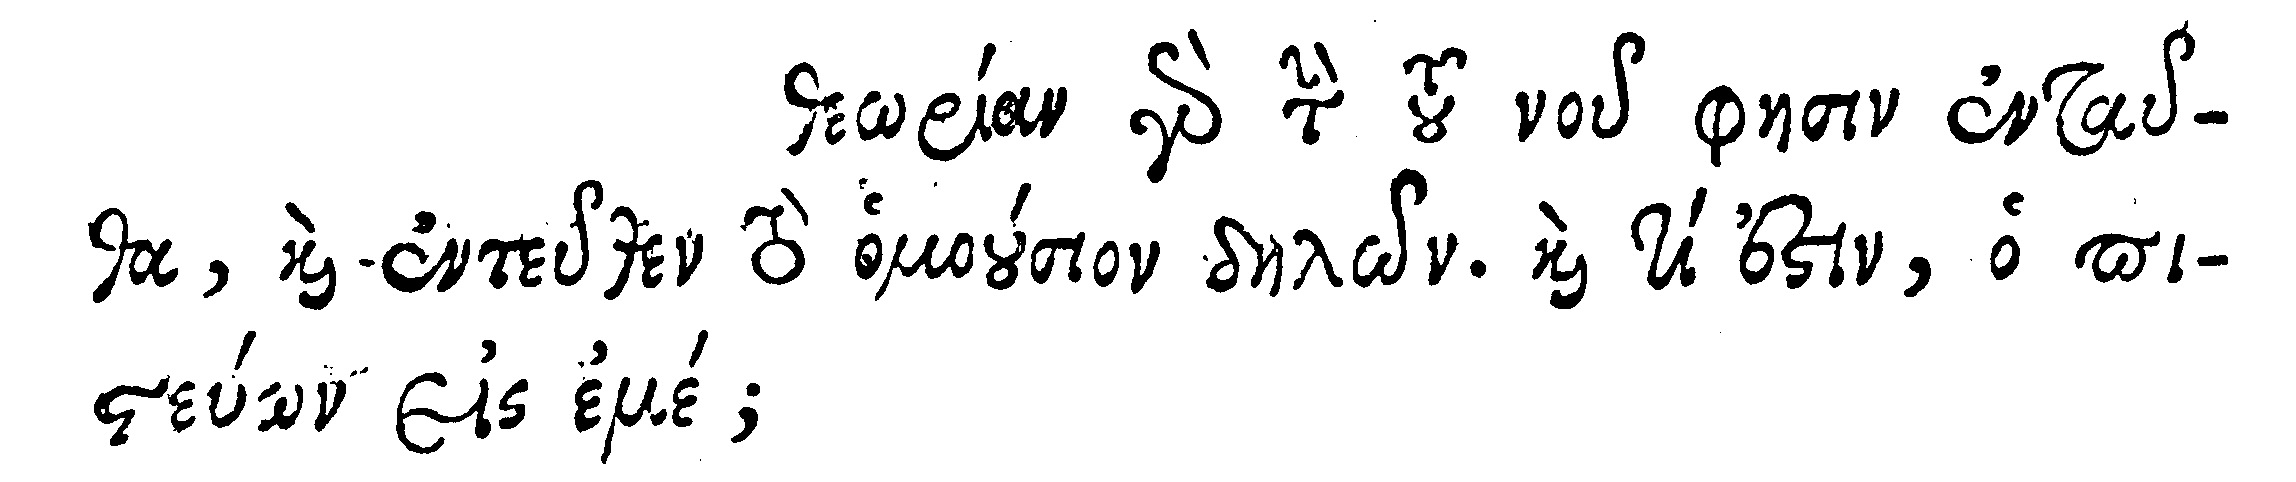 θεωρίαν γὰρ τὴν τοῦ νοῦ φησιν ἐνταῦ-
θα, καὶ ἐντεῦθεν τὸ ὁμοούσιον δηλῶν. καὶ τί ἐστιν, ὁ πι-
στεύων εἰς ἐμέ;